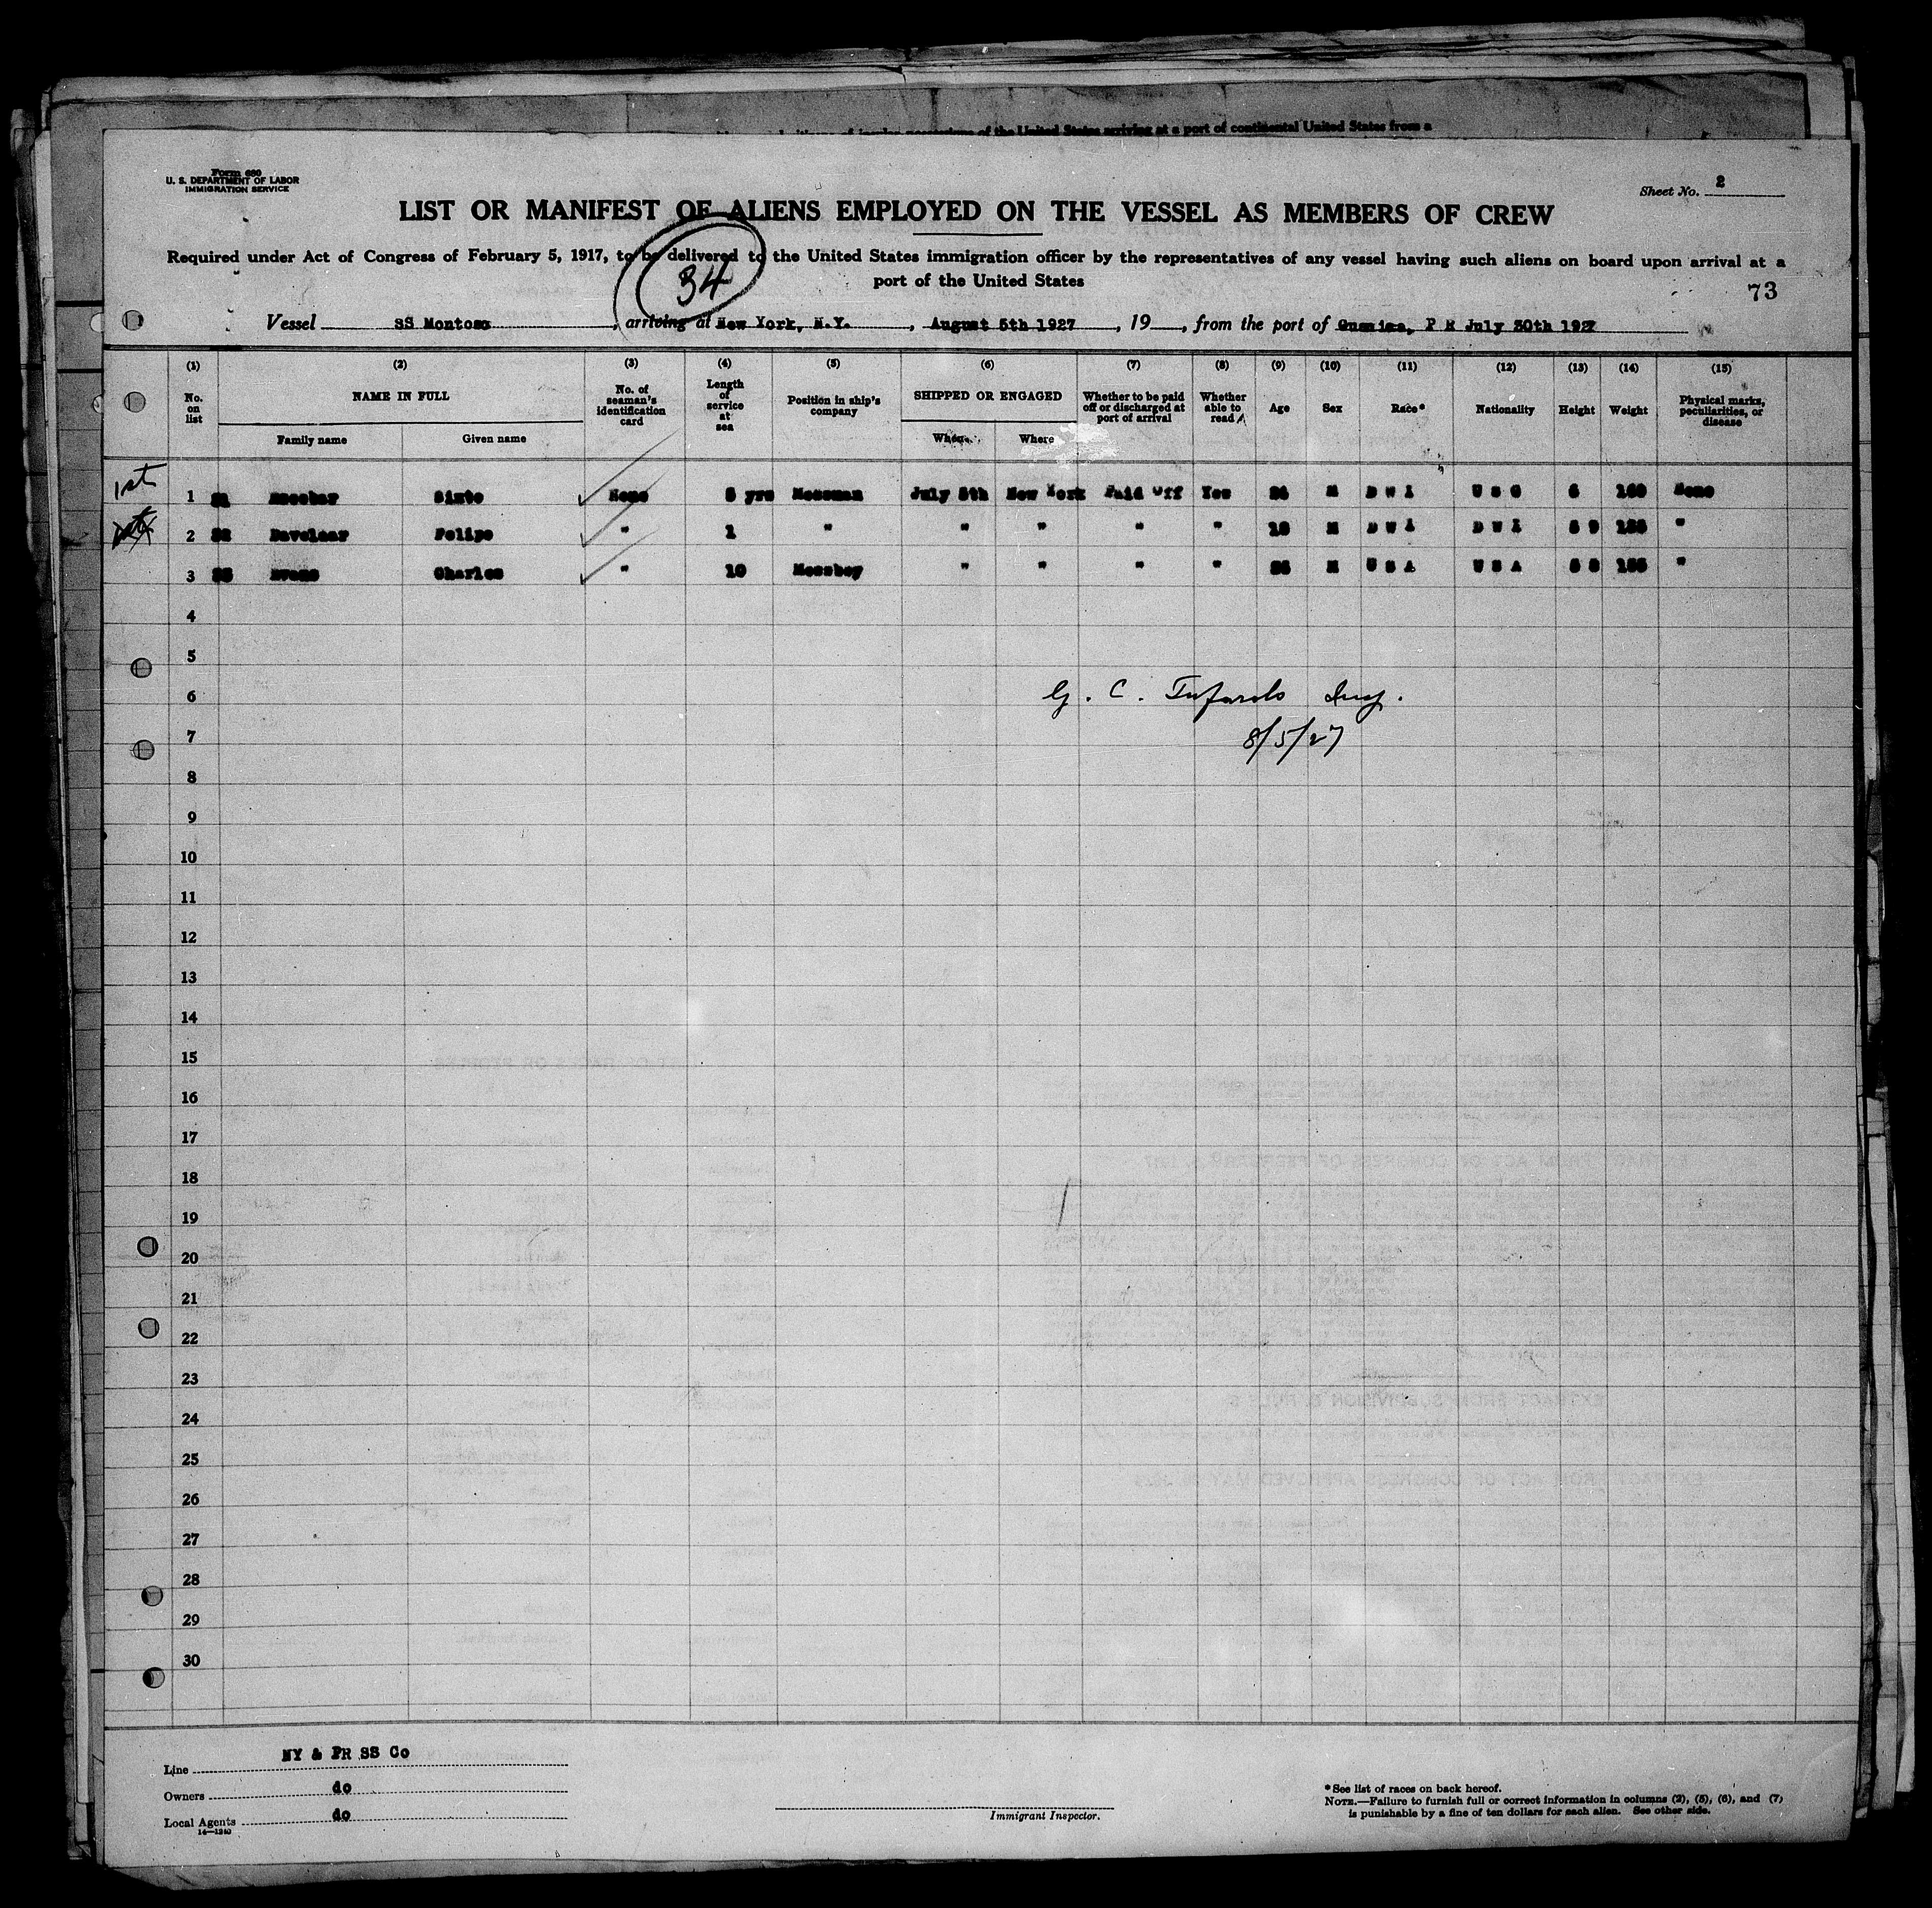 citizens of insular possessions of the United States arriving at a port of continental United States from a
Form 680
U. S. DEPARTMENT OF LABOR
IMMIGRATION SERVICE
Sheet No. 2
LIST OR MANIFEST OF ALIENS EMPLOYED ON THE VESSEL AS MEMBERS OF CREW
Required under Act of Congress of February 5, 1917, to be delivered to the United States immigration officer by the representatives of any vessel having such aliens on board upon arrival at a
port of the United States
34
73
Vessel SS Montoso, arriving at New York, N.Y., August 5th 1927, 19, from the port of Guanica, P R July 30th 1927
(1) (2) (3) (4) (5) (6) (7) (8) (9) (10) (11) (12) (13) (14) (15)
No. on list NAME IN FULL No. of seaman's identification card Length of service at sea Position in ship's company SHIPPED OR ENGAGED Whether to be paid off or discharged at port of arrival Whether able to read Age Sex Race* Nationality Height Weight Physical marks, peculiarities, or disease
Family name Given name When Where
1st 1 Sixto None 5 yrs Messman July 5th New York Paid Off Yes M D W I 6 160 None
2 Felipe " 1 " " " " " 18 M D W I D W I 5 9 "
3 Evans Charles " 10 Messboy " " " " M U S A U S A 5 8 "
4
5
6
G. C. Tufarolo Insp.
7
8/5/27
8
9
10
11
12
13
14
15
16
17
18
19
20
21
22
23
24
25
26
27
28
29
30
Line NY & PR SS Co
Owners do
Local Agents do
14—1240
Immigrant Inspector.
* See list of races on back hereof.
NOTE.—Failure to furnish full or correct information in columns (2), (5), (6), and (7)
is punishable by a fine of ten dollars for each alien. See other side.